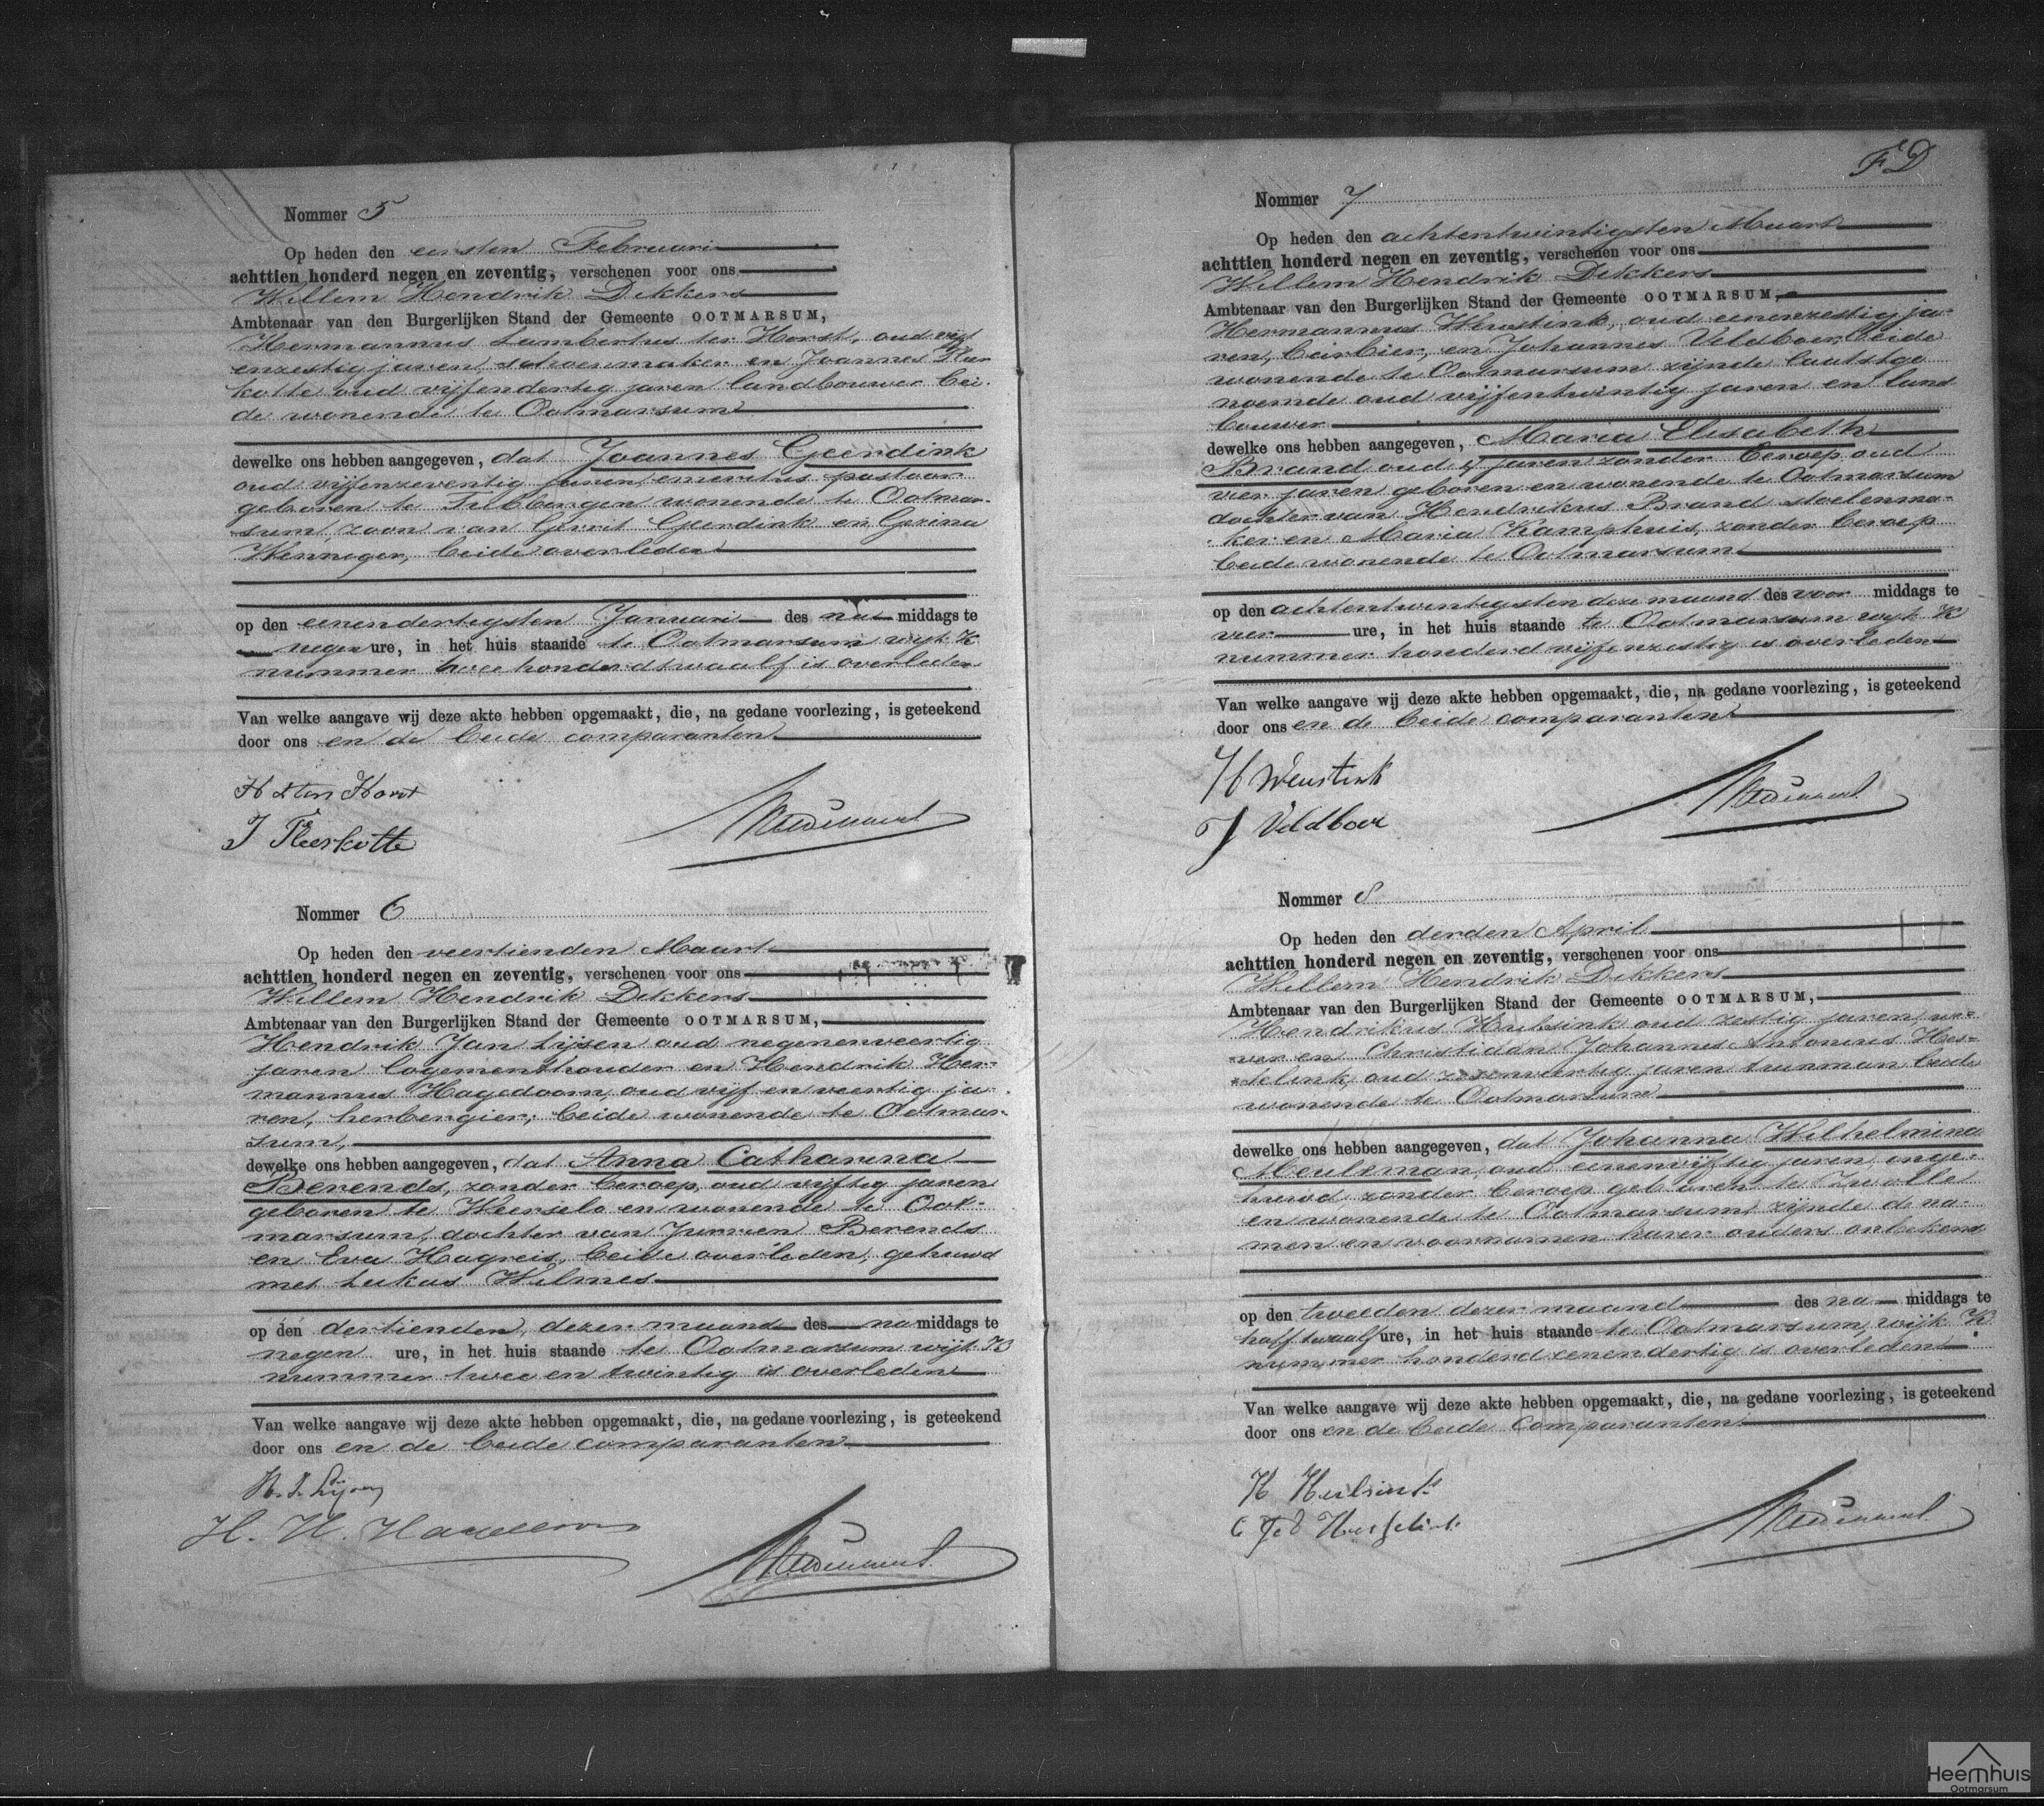 Nommer 5
Op heden den eersten Februari
achttien honderd negen en zeventig, verschenen voor ons
Willem Hendrik Dekkers
Ambtenaar van den Burgerlijken Stand der Gemeente OOTMARSUM,
Hermannus Lambertus ter Horst, oud vijf
enzestig jaren, schoenmaker en Joannes Fleer
kotte oud vijfendertig jaren landbouwer bei
de wonende te Ootmarsum
dewelke ons hebben aangegeven, dat Joannes Geerdink
oud vijfenzeventig jaren, emeritus pastoor
geboren te Tubbergen wonende te Ootmar-
sum, zoon van Gerrit Geerdink en Gezina
Wenneger, beide overleden
op den eenendertigsten Januari des na middags te
negen ure, in het huis staande te Ootmarsum wijk K
nummer twee honderd twaalf is overleden
Van welke aangave wij deze akte hebben opgemaakt, die, na gedane voorlezing, is geteekend
door ons en de beide comparanten
H L ter Horst
J Fleerkotte
Nommer 6
Op heden den veertienden Maart
achttien honderd negen en zeventig, verschenen voor ons
Willem Hendrik Dekkers
Ambtenaar van den Burgerlijken Stand der Gemeente OOTMARSUM,
Hendrik Jan Lijsen oud negenenveertig
jaren logementhouder en Hendrik Her-
mannus Hagedoorn, oud vijf en veertig ja-
ren, herbergier, beide wonende te Ootmar-
sum,
dewelke ons hebben aangegeven, dat Anna Catharina
Berends, zonder beroep, oud vijftig jaren
geboren te Weerselo en wonende te Oot-
marsum, dochter van Jurrien Berends
en Eva Hagreis, beide overleden, gehuwd
met Lukas Wilmes
op den dertienden dezer maand des na middags te
negen ure, in het huis staande te Ootmarsum wijk K
nummer twee en twintig is overleden
Van welke aangave wij deze akte hebben opgemaakt, die, na gedane voorlezing, is geteekend
door ons en de beide comparanten
H. J. Lijsen
H. H. Hagedoorn
F D
Nommer 7
Op heden den achtentwintigsten Maart
achttien honderd negen en zeventig, verschenen voor ons
Willem Hendrik Dekkers
Ambtenaar van den Burgerlijken Stand der Gemeente OOTMARSUM,
Hermannus Weustink, oud eenenzestig ja-
ren, barbier, en Johannes Veldboer, beide
wonende te Ootmarsum zijnde laatstge
noemde oud vijfentwintig jaren en land
bouwer
dewelke ons hebben aangegeven, Maria Elisabeth
Brand oud 4 jaren zonder beroep oud
vier jaren geboren en wonende te Ootmarsum
dochter van Hendrikus Brand stoelenma-
ker en Maria Kamphuis, zonder beroep
beide wonende te Ootmarsum
op den achtentwintigsten deze maand des voor middags te
vier ure, in het huis staande te Ootmarsum wijk K
nummer honderd vijfenzestig is overleden
Van welke aangave wij deze akte hebben opgemaakt, die, na gedane voorlezing, is geteekend
door ons en de beide comparanten
H Weustink
J Veldboer
Nommer 8
Op heden den derden April
achttien honderd negen en zeventig, verschenen voor ons
Willem Hendrik Dekkers
Ambtenaar van den Burgerlijken Stand der Gemeente OOTMARSUM,
Hendrikus Hulsink oud zestig jaren, we-
ver en Christiaan Johannes Antonius Hes-
selink, oud zevenveertig jaren tuinman beide
wonende te Ootmarsum
dewelke ons hebben aangegeven, dat Johanna Wilhelmina
Meuleman, oud eenenvijftig jaren, onge-
huwd zonder beroep geboren te Zwolle
en wonende te Ootmarsum, zijnde de na-
men en voornamen harer ouders onbekend
op den tweeden dezer maand des na middags te
half twaalf ure, in het huis staande te Ootmarsum, wijk K
nummer honderd eenendertig is overleden
Van welke aangave wij deze akte hebben opgemaakt, die, na gedane voorlezing, is geteekend
door ons en de beide Comparanten
H Hulsink
Heemhuis
Ootmarsum